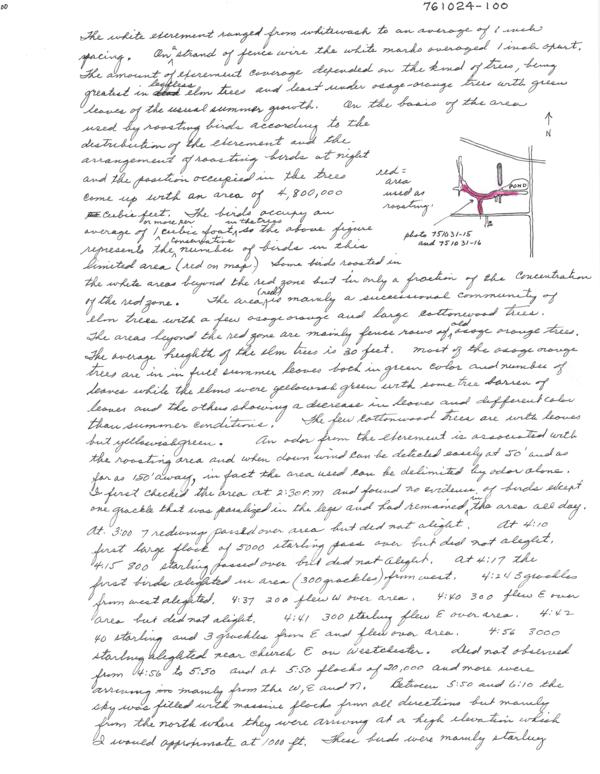 00
761024-100
The white excrement ranged from whitewash to an average of 1 inch
spacing. On a strand of fence wire the white marks averaged 1 inch apart.
The amount of excrement coverage depended on the kind of trees, being
greatest in leafless elm trees and least under osage-orange trees with green
leaves of the usual summer growth. On the basis of the area
used by roosting birds according to the
distribution of the excrement and the
arrangement of roosting birds at night
and the position occupied in the trees
come up with an area of 4,800,000
cubic feet. The birds occupy an
average of 1 or more per cubic foot, in the trees so the above figure
represents the conservative number of birds in this
limited area (red on map) Some birds roosted in
the white areas beyond the red zone but in only a fraction of the concentration
of the red zone. The area (red) is mainly a successional community of
elm trees with a few osage orange and large cottonwood trees.
The areas beyond the red zone are mainly fence rows of old osage orange trees.
The average heighth of the elm trees is 30 feet. Most of the osage orange
trees are in in full summer leaves both in green color and number of
leaves while the elms were yellowish green with some tree barren of
leaves and the others showing a decrease in leaves and different color
than summer conditions. The few cottonwood trees are with leaves
but yellowish green. An odor from the excrement is associated with
the roosting area and when down wind can be detected easely at 50' and as
far as 150' away, in fact the area used can be delimited by odor alone.
I first checked the area at 2:30 P.M and found no evidence of birds except
one grackle that was paralized in the legs and had remained in the area all day.
At 3:00 7 redwings passed over area but did not alight. At 4:10
first large flock of 5000 starling pass over but did not aleght.
4:15 800 starling passed over but did not aleght. At 4:17 the
first birds aleghted in area (300 grackles) from west. 4:24 3 grackles
from west aleghted. 4:37 200 flew W over area. 4:40 300 flew E over
area but did not alight. 4:41 300 starling flew E over area. 4:42
40 starling and 3 grackles from E and flew over area. 4:56 3000
starling aleghted near church E on Westchester. Did not observed
from 4:56 to 5:50 and at 5:50 flocks of 20,000 and more were
arriving in mainly from the W, E and N. Between 5:50 and 6:10 the
sky was filled with massive flocks from all directions but mainly
from the north where they were arriving at a high elevation which
I would approximate at 1000 ft. These birds were mainly starling
N
red =
area
used as
roosting.
POND
photo 751031-15
and 751031-16